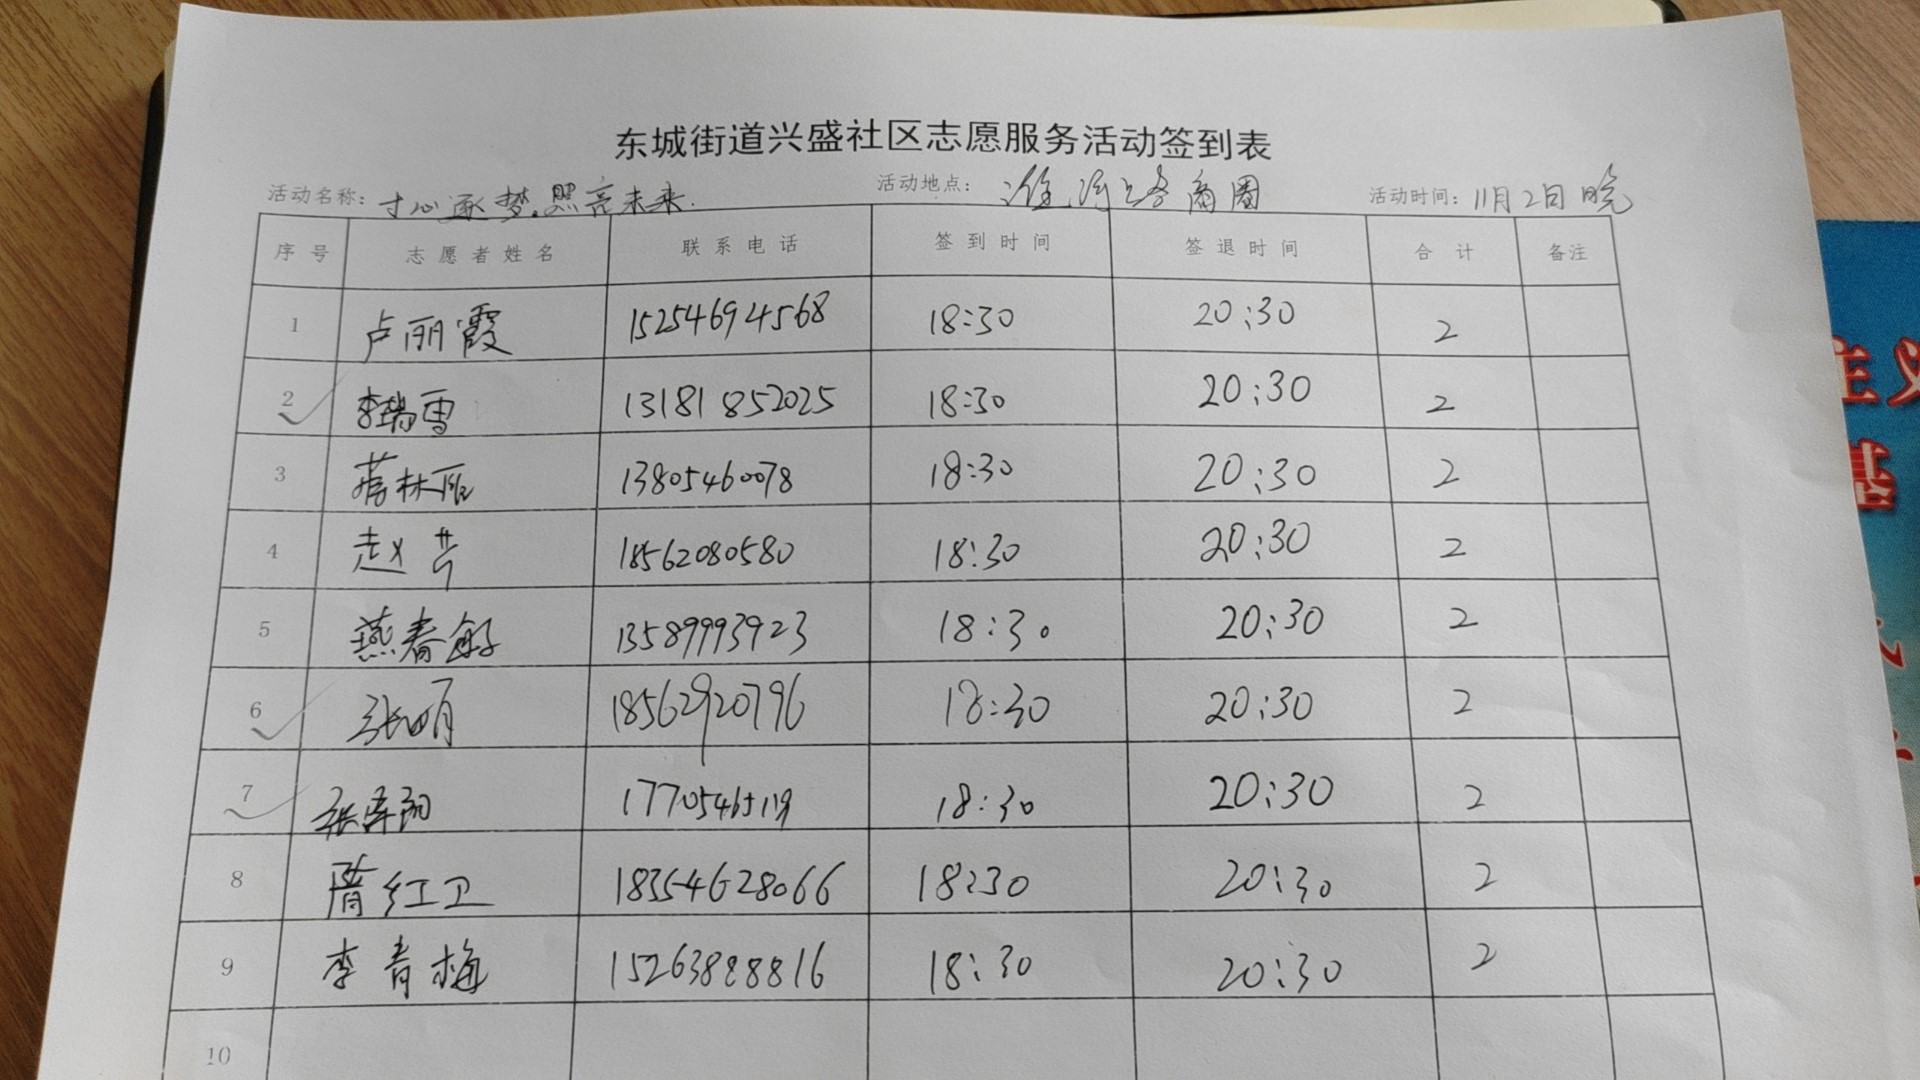 东城街道兴盛社区志愿服务活动签到表
活动名称：寸心逐梦.照亮未来. 活动地点：淮河路商圈 活动时间：11月2日晚
序号 志愿者姓名 联系电话 签到时间 签退时间 合计 备注
1 卢丽霞 15254694568 18:30 20:30 2
2 李瑞雪 13181852025 18:30 20:30 2
3 林丽 13805460078 18:30 20:30 2
4 赵芹 18562080580 18:30 20:30 2
5 燕春敏 13589993923 18:30 20:30 2
6 张明 18562920796 18:30 20:30 2
7 张 17705465119 18:30 20:30 2
8 隋红卫 18354628066 18:30 20:30 2
9 李青梅 15263888816 18:30 20:30 2
10